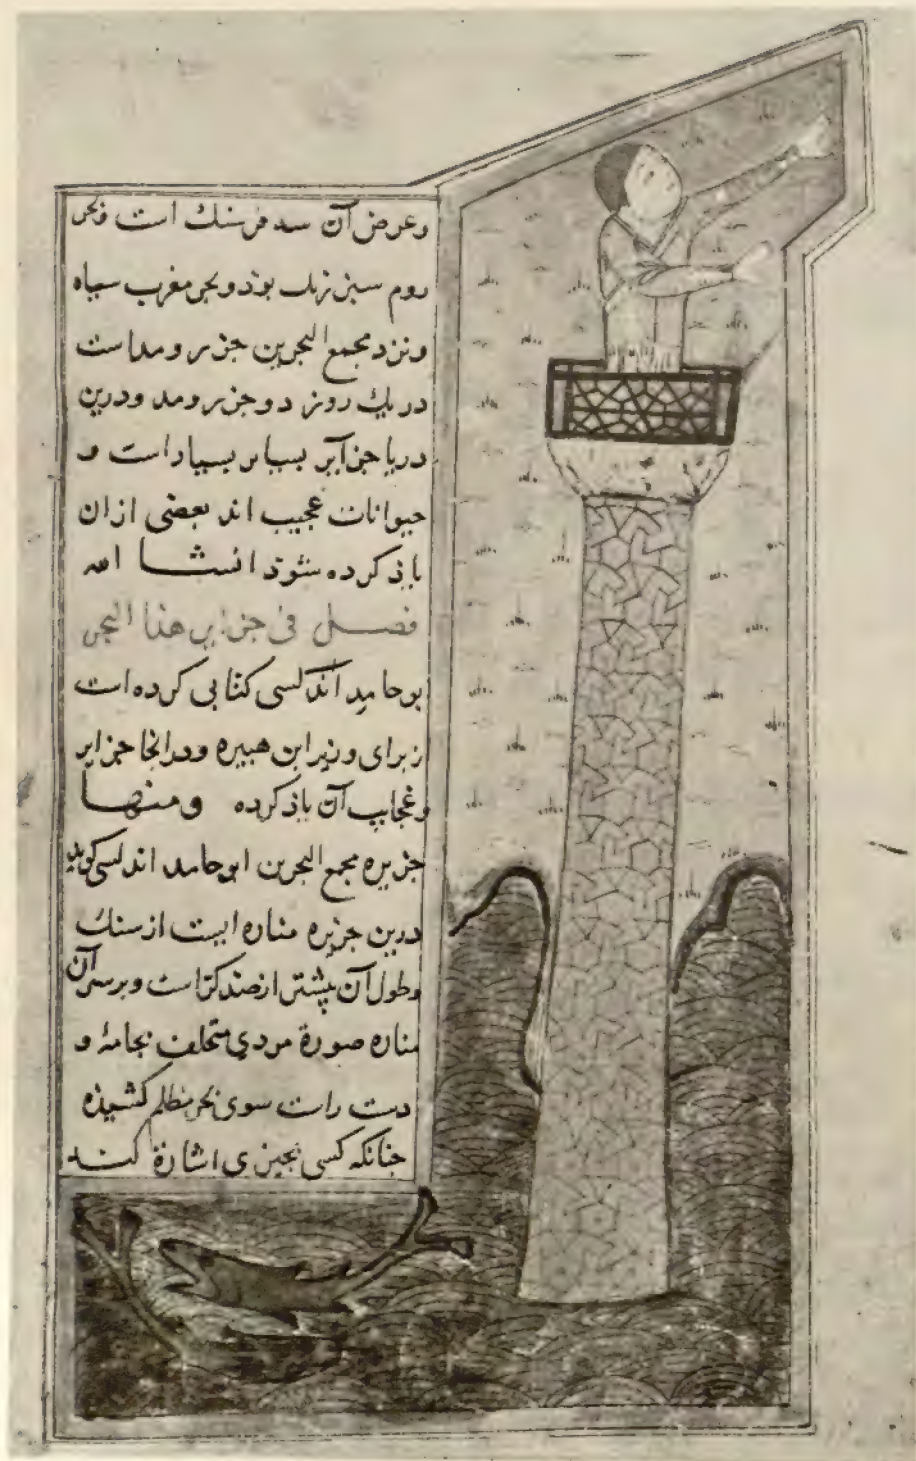 وعرض آن سه فرسنك است وبحر
روم سبز رنك بوذ و بحر مغرب سياه
و نزد مجمع البحرين جزر و مد است
در يك روز دو جزر و مد و درين
دريا جزآير بسيار بسيار است و
حيوانات عجيب اند بعضی از ان
ياذ كرده شوذ انشا الله
فصل فی جزاير هذا البحر
بو حامد اندلسی كتابی كرده است
از برای وزير ابن هبيره و در انجا جزاير
و عجايب آن ياذ كرده ومنها
جزيره مجمع البحرين ابو حامد اندلسی كويد
درين جزيره مناره ايست از سنك
وطول آن بيشتر از صد كز است و بر سر آن
مناره صورة مردی بجامۀ و
دست راست سوی بحر مظلم كشيذه
جنانكه كسی بجيزی اشارة كند